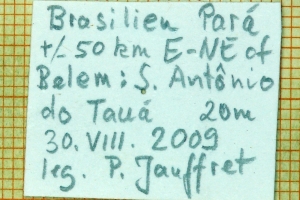 Brasilien Pará
+/- 50 km E-NE of
Belem: S. Antônio
do Tauá 20m
30. VIII. 2009
leg. P. Jauffret